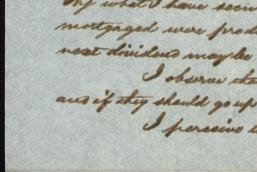 By what I have seen
mortgaged were prod
next dividend may be
I observe tha
and if they should go up
I perceive t